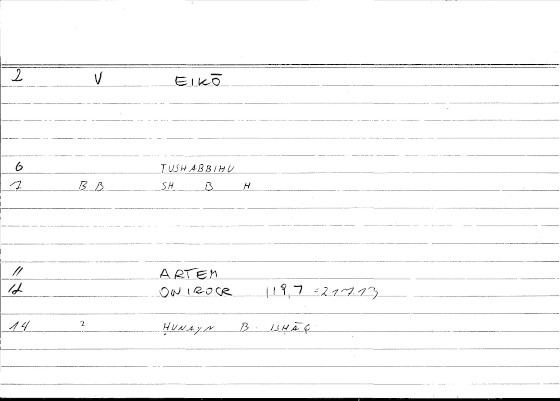 2 V EIKŌ
6 TUSHABBIHU
7 BB SH B H
11 ARTEM
12 ONIROCR 119,7 = 217.13
14 2 ḤUNAYN B. ISḤĀQ